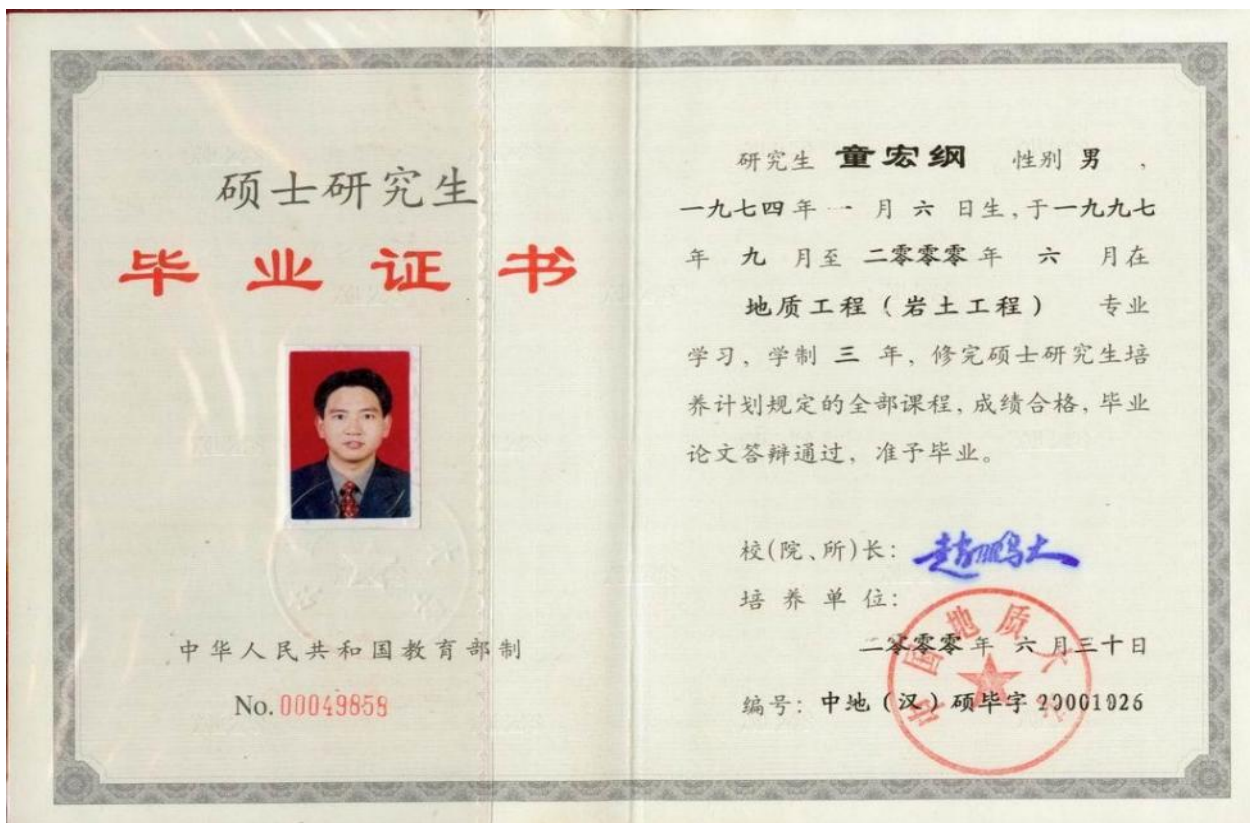 硕士研究生
毕业证书
中华人民共和国教育部制
No. 00049858
研究生 童宏纲 性别 男 ,
一九七四 年 一 月 六 日生,于 一九九七
年 九 月至 二零零零 年 六 月在
地质工程(岩土工程) 专业
学习, 学制 三 年, 修完硕士研究生培
养计划规定的全部课程, 成绩合格, 毕业
论文答辩通过, 准予毕业。
校(院、所)长: 赵鹏大
培 养 单 位:
中国地质大学
二零零零 年 六 月三十日
编号: 中地(汉)硕毕字 20001026